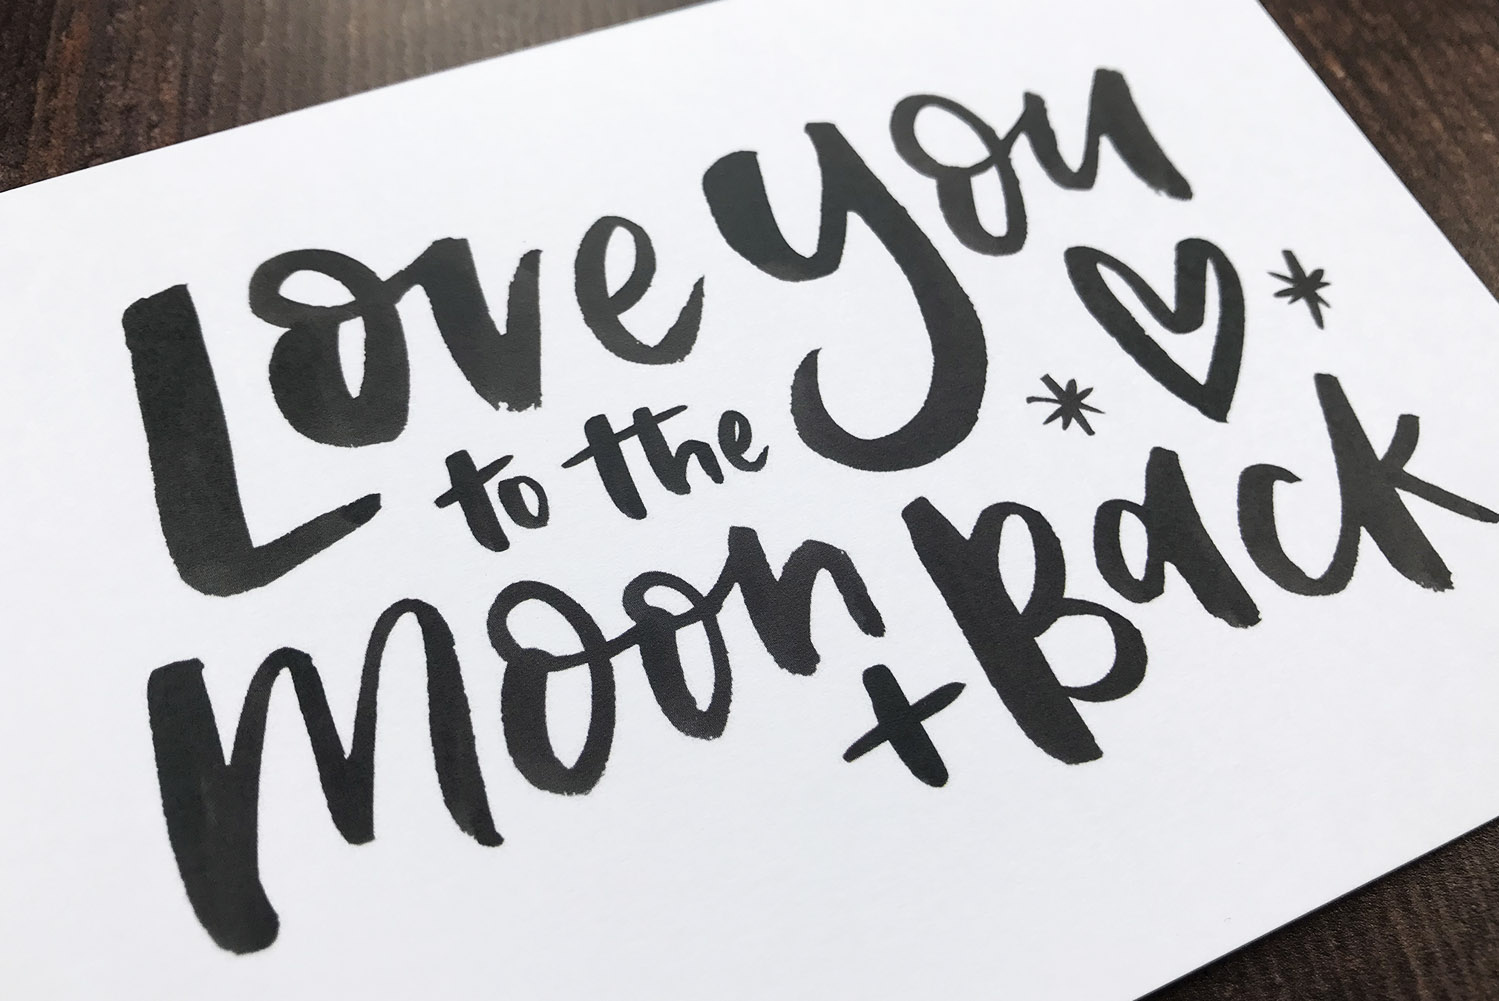 Love You
to the
Moon + Back